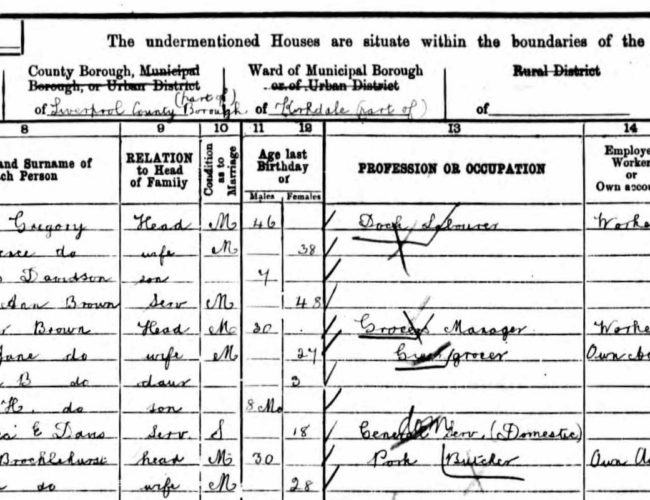 The undermentioned Houses are situate within the boundaries of the
County Borough, Municipal Borough, or Urban District
of Liverpool County Borough (part of)
Ward of Municipal Borough or of Urban District
of Kirkdale (part of)
Rural District
of
8 9 10 11 12 13 14
and Surname of
ch Person
RELATION
to Head
of Family
Condition
as to
Marriage
Age last
Birthday
of
Males Females
PROFESSION OR OCCUPATION
Employe
Worker
or
Own accou
Gregory Head M 46 Dock Labourer Worke
do wife M 38
Davidson son 7
Ann Brown Serv M 48
Brown Head M 30 Grocers Manager Worke
Jane do wife M 27 grocer Own acc
B do daur 3
H. do son 8 Mo
E Davis Serv. S 18 General Serv. (Domestic)
Brocklehurst head M 30 Pork Butcher Own A
do wife M 28